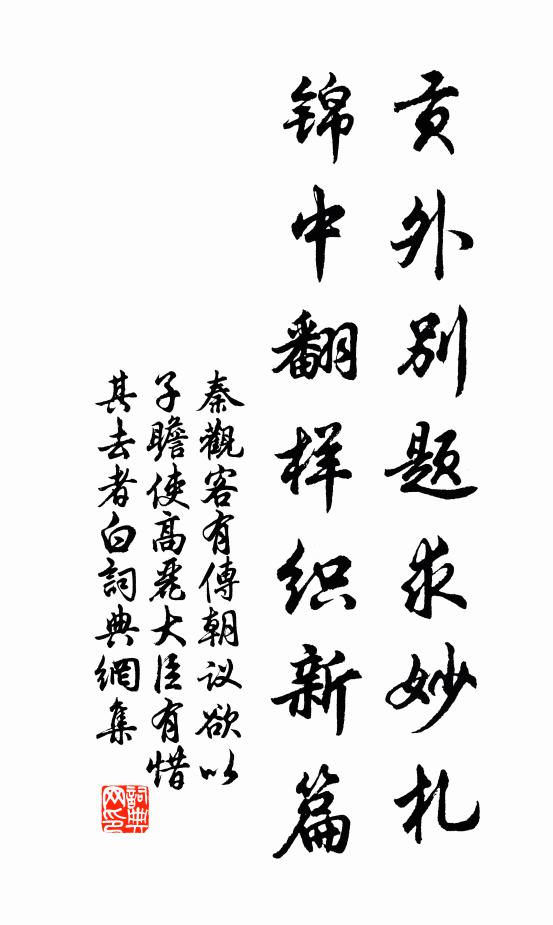 贡外别题求妙札
锦中翻样织新篇
秦觀客有傳朝议欲以
子瞻使高丽大臣有惜
其去者白詞典網集
詞典网印